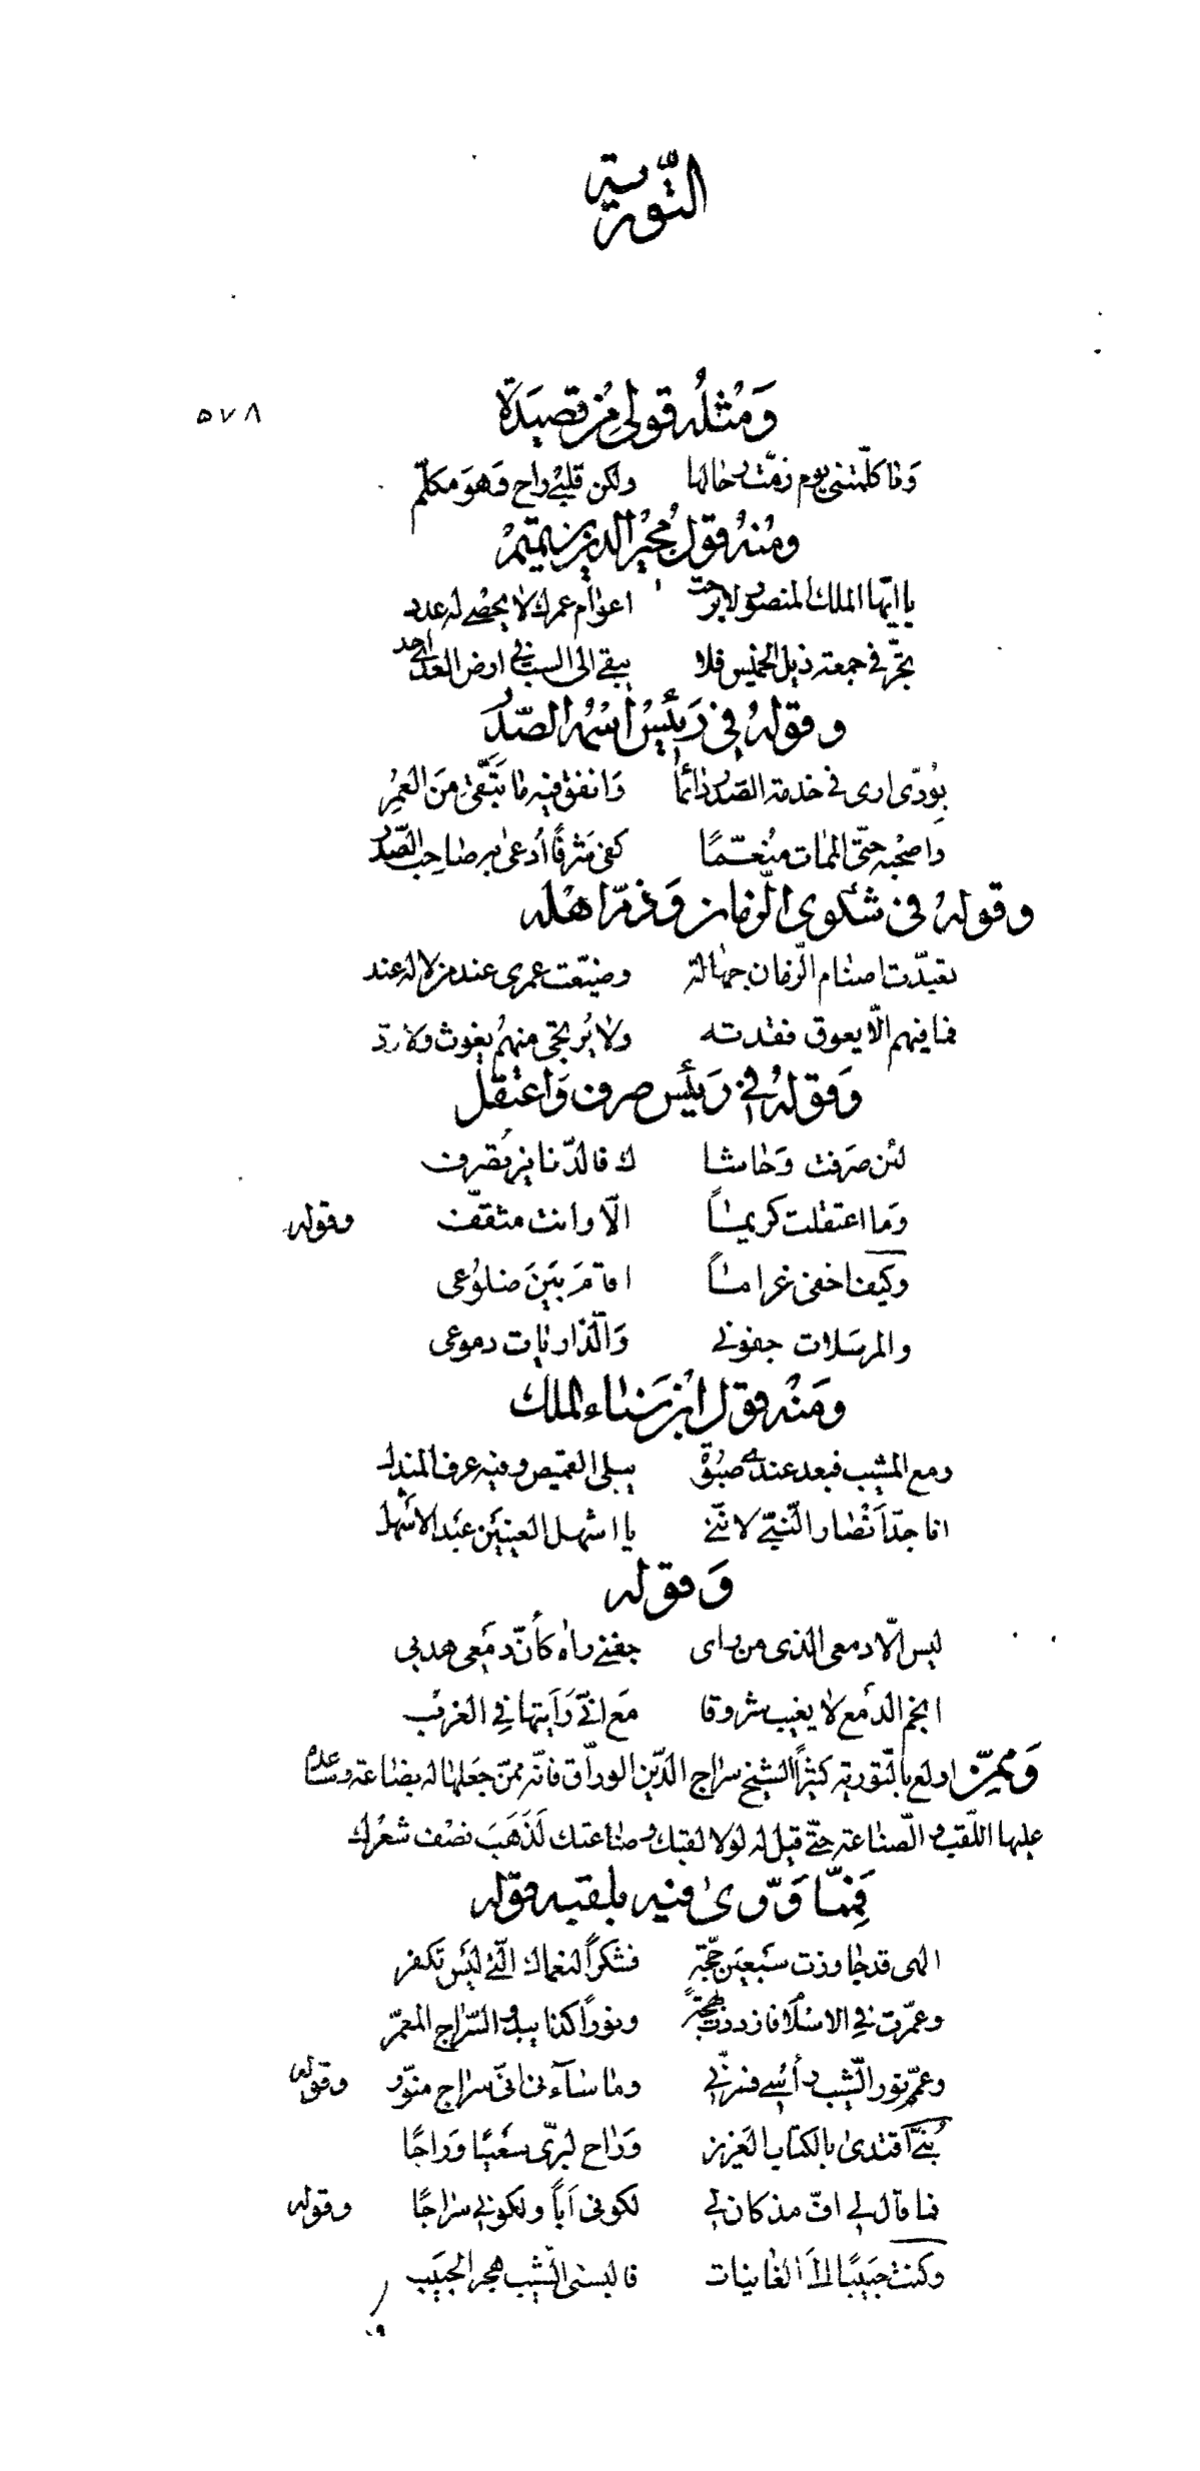 التورية
٥٧٨
ومثله قولى من قصيدة
وما كلّمتنى يوم زمّت رحالها ولكن قلبى راح وهو مكلّم
ومنه قول مجير الدين بن تميم
يا ايّها الملك المنصور لا برحت اعوام عمرك لا يحصى له عدد
تجرّ فى جمعة ذيل الخميس فلا يبقى الى السبت فى ارض العدا احد
وقوله فى رئيس اسمه الصّدر
بودّى ارى فى خدمة الصّدر دائما وانفق فيه ما تبقّى من العمر
واصحبه حتّى الممات منعّمًا كفى شرفًا أدعى به صاحب الصّدر
وقوله فى شكوى الزمان وذمّ اهله
تعبّدت اصنام الزّمان جهالة وضيّعت عمرى عند من لا له عند
فما فيهم الّا يعوق فقدته ولا يرتجى منهم يغوث ولا ردّ
وقوله فى رئيس صرف واعتقل
لئن صرفت وحاشا ك فالدّنانير تصرف
وما اعتقلت كريماً الّا وانت مثقّف وقوله
وكيف اخفى غراماً اقام بين ضلوعى
والمرسلات جفونى والذّاريات دموعى
ومنه قول ابن سناء الملك
ومع المشيب فبعد عندى صبوة يبلى القميص وفيه عرف المندل
انا جدّ أنصار النّبىّ لانّنى يا اشهل العينين عبد الأشهل
وقوله
ليس الّا دمعى الذى من رأى جفنى رآه كأنّ دمعى هدبى
انجم الدّمع لا يغيب شروقا مع انّى رأيتها فى الغرب
وممّن اولع بالتّورية كثيرًا الشيخ سراج الدّين الورّاق فانّه ممّن جعلها له بضاعة وساعده
عليها اللّقب و الصّناعة حتّى قيل له لولا لقبك و صناعتك لذهب نصف شعرك
فممّا ورّى فيه بلقبه قوله
الهى قد جاوزت سبعين حجّة فشكراً لنعماك الّتى ليس تكفر
وعمّرت فى الاسلام فازددت بهجة ونوراً كذا يبدو السّراج المعمّر
وعمّ نور الشّيب رأسى فسرّنى وما ساءنى انّى سراج منوّر وقوله
بنىّ اقتدى بالكتاب العزيز وراح لبرّى سعيًا وراجًا
فما قال لى افّ مذ كان لى لكونى أباً ولكونى سراجًا وقوله
وكنت حبيبًا الى الغانيات فالبسنى الشّيب هجر الحبيب